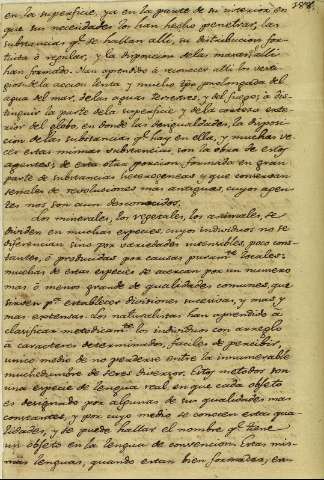 188.
en la superficie, ya en la parte de su interior en
que sus necesidades los han hecho penetrar, las
substancias q.e se hallan alli, su distribucion for-
tuita ó regular, y la disposicion de las masas alli
han formado. Han aprendido á reconocer alli los vesti-
gios de la accion lenta y mucho tpo prolongada del
agua del mar, de las aguas terrestres, y del fuego; á dis-
tinguir la parte de la superficie y de la corteza exte-
rior del globo, en donde las desigualdades, la disposi-
cion de las substancias q.e hay en ella, y muchas ve-
ces estas mismas substancias son la obra de estos
agentes; de esta otra porcion, formada en gran
parte de substancias heterogeneas y que conservan
señales de revoluciones mas antiguas, cuyos agen-
tes nos son aun desconocidos.
Los minerales, los vegetales, los animales, se
dividen en muchas especies, cuyos individuos no se
diferencian sino por variedades insensibles, poco cons-
tantes, ó producidas por causas puram.te locales:
muchas de estas especies se acercan por un numero
mas ó menos grande de qualidades comunes, que
sirven p.a establecer divisiones sucesivas, y mas y
mas extensas. Los naturalistas han aprendido á
clasificar metodicam.te los individuos con arreglo
á caracteres determinados, faciles de percibir,
unico medio de no perderse entre la innumerable
muchedumbre de seres diversos. Estos metodos son
una especie de lengua real, en que cada objeto
es designado por algunas de sus qualidades mas
constantes, y por cuyo medio se conocen estas qua-
lidades, y se puede hallar el nombre q.e tiene
un objeto en la lengua de convencion. Estas mis-
mas lenguas, quando estan bien formadas, en-